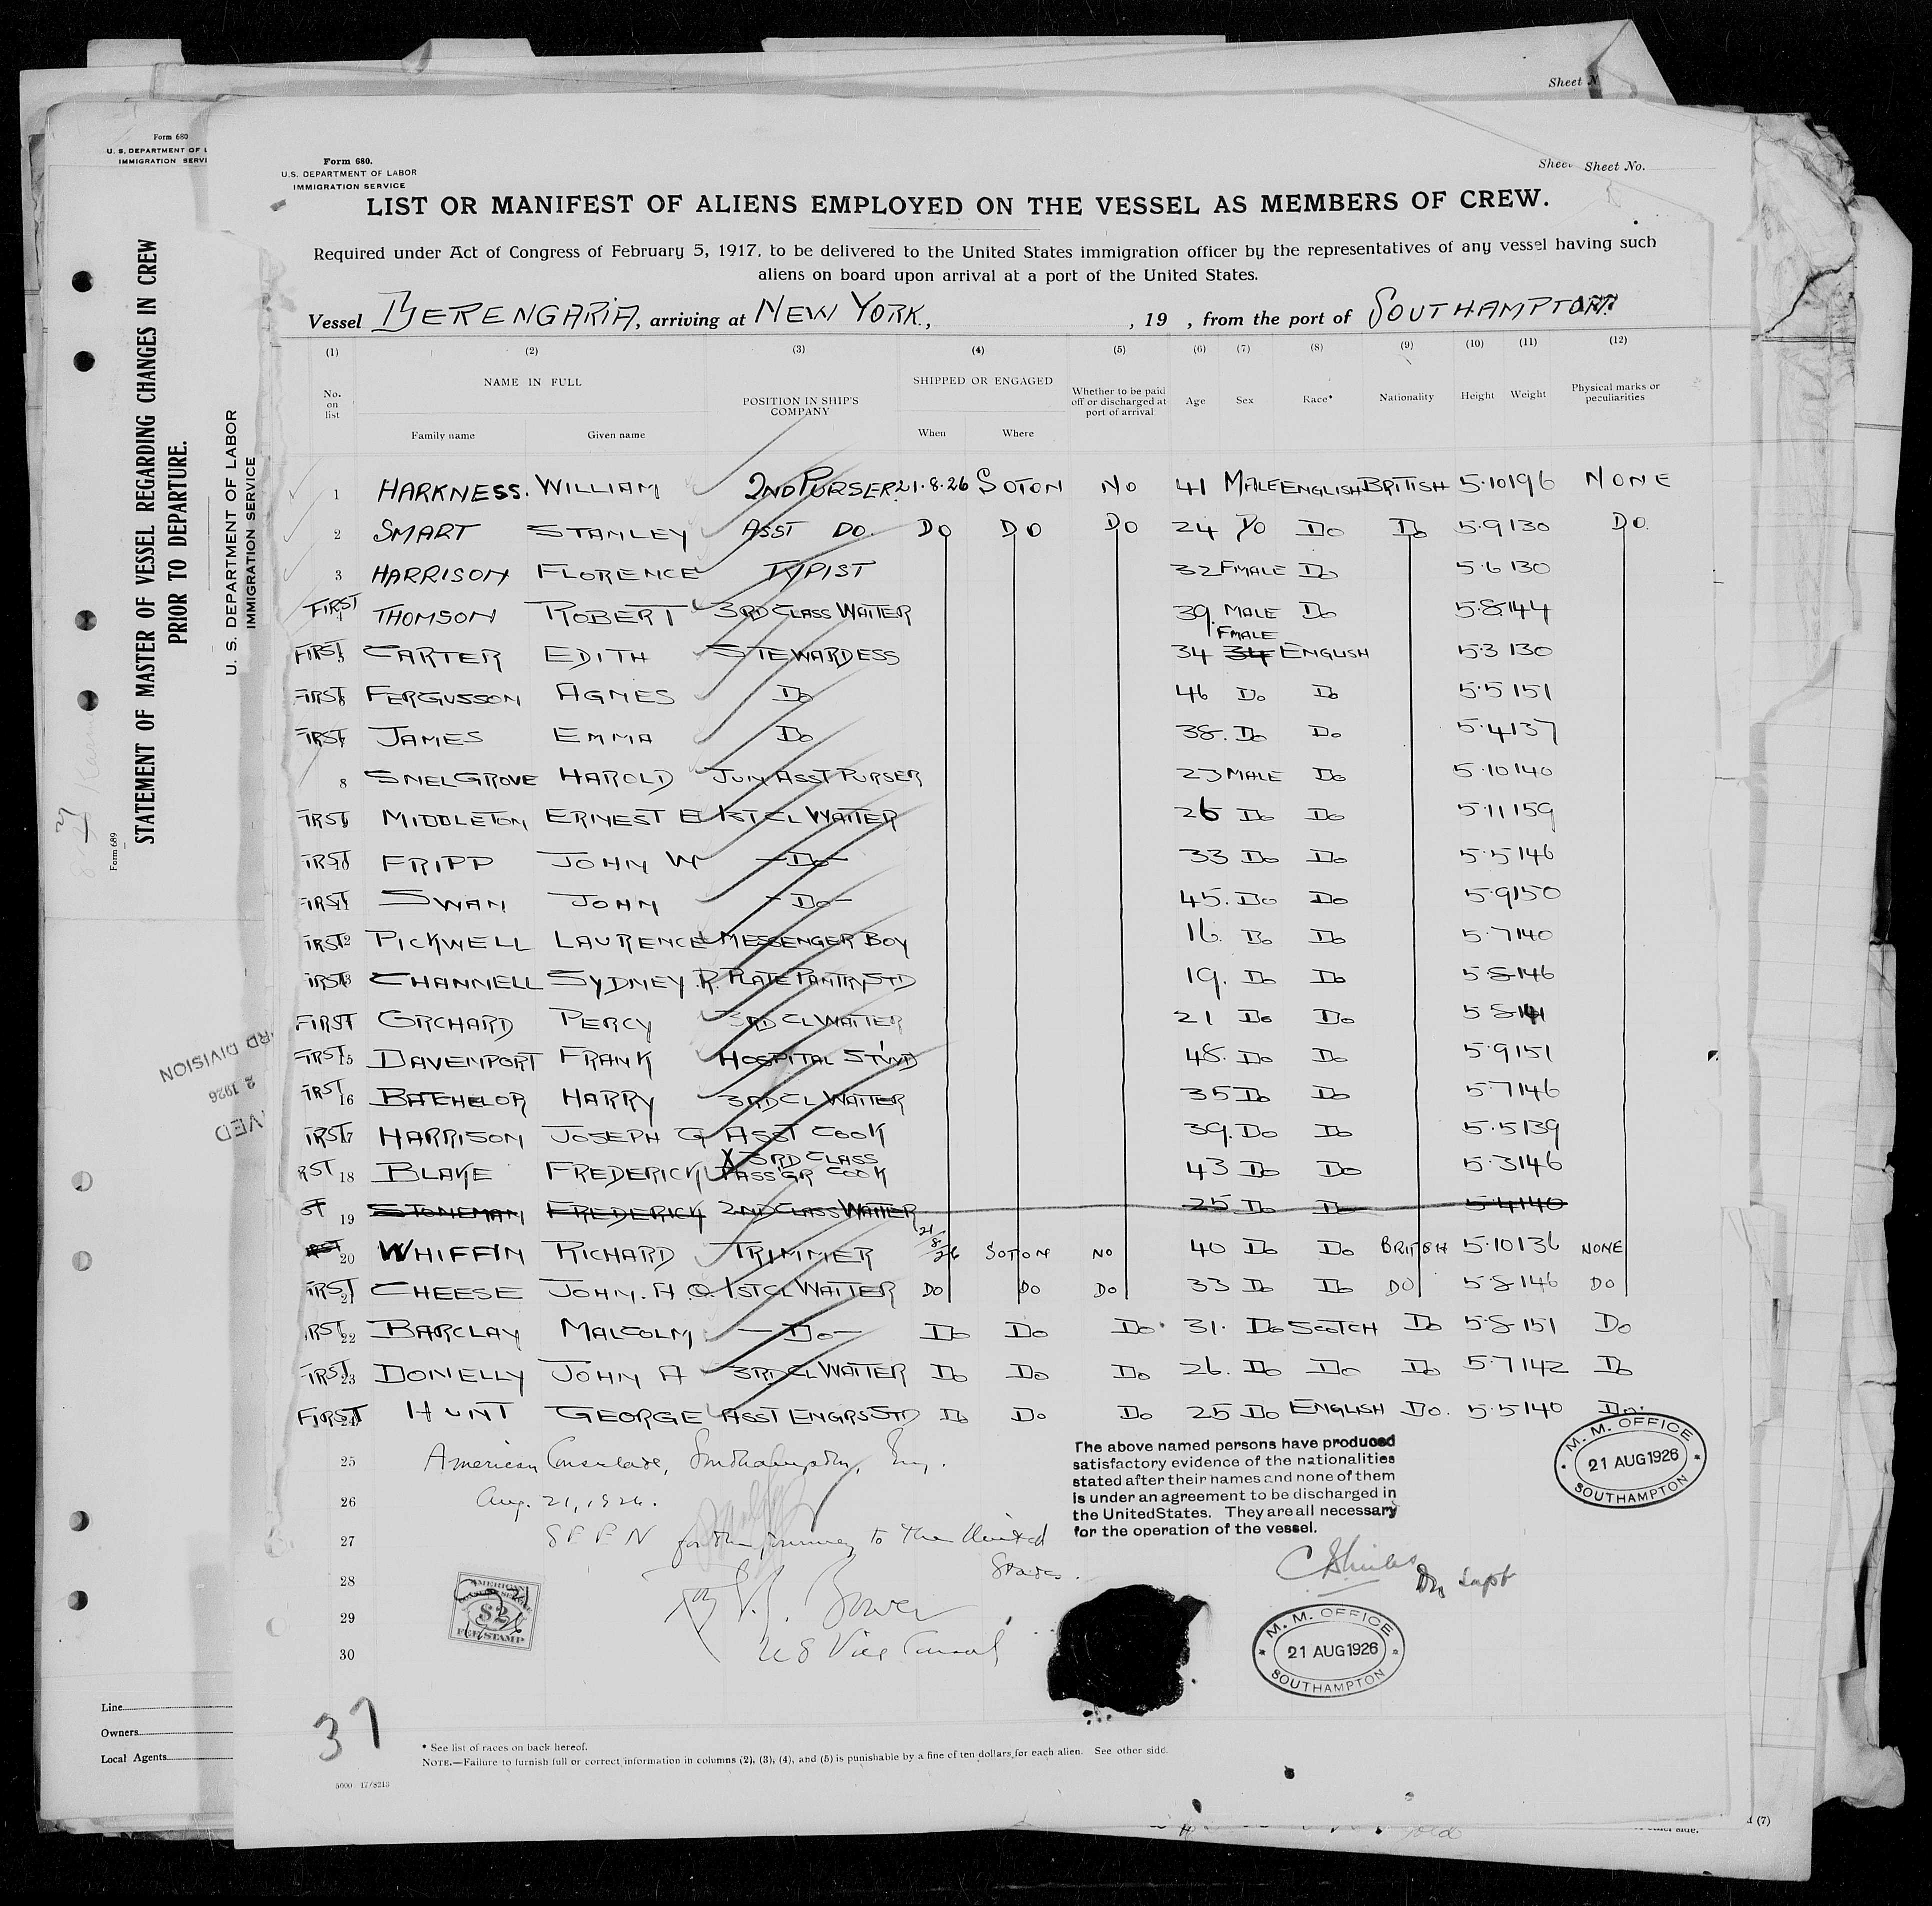 Sheet N
Form 680
U. S. DEPARTMENT OF L
IMMIGRATION SERVI
Form 680.
U.S. DEPARTMENT OF LABOR
IMMIGRATION SERVICE
Shee
Sheet No.
LIST OR MANIFEST OF ALIENS EMPLOYED ON THE VESSEL AS MEMBERS OF CREW.
Required under Act of Congress of February 5, 1917, to be delivered to the United States immigration officer by the representatives of any vessel having such
aliens on board upon arrival at a port of the United States.
Vessel BERENGARIA, arriving at NEW YORK, , 19 , from the port of SOUTHAMPTON
(1) (2) (3) (4) (5) (6) (7) (8) (9) (10) (11) (12)
No. on list NAME IN FULL POSITION IN SHIP'S COMPANY SHIPPED OR ENGAGED Whether to be paid off or discharged at port of arrival Age Sex Race* Nationality Height Weight Physical marks or peculiarities
Family name Given name When Where
1 HARKNESS. WILLIAM 2ND PURSER. 21.8.26 SOTON NO 41 MALE ENGLISH BRITISH 5.10 196 NONE
2 SMART STANLEY ASST DO. DO DO DO 24 DO DO DO 5.9 130 DO.
3 HARRISON FLORENCE TYPIST 32 FMALE DO 5.6 130
FIRST 4 THOMSON ROBERT 3RD CLASS WAITER 39. MALE DO 5.8 144
FIRST 5 CARTER EDITH STEWARDESS 34 34 FMALE ENGLISH 5.3 130
FIRST 6 FERGUSSON AGNES DO 46 DO DO 5.5 151
FIRST 7 JAMES EMMA DO 38. DO DO 5.4 137
8 SNELGROVE HAROLD JUN ASST PURSER 23 MALE DO 5.10 140
FIRST 9 MIDDLETON ERNEST E 1ST CL WAITER 26 DO DO 5.11 159
FIRST 10 FRIPP JOHN W -DO- 33 DO DO 5.5 146
FIRST 11 SWAN JOHN -DO- 45. DO DO 5.9 150
FIRST 12 PICKWELL LAURENCE MESSENGER BOY 16. DO DO 5.7 140
FIRST 13 CHANNELL SYDNEY R. PLATE PANTRY STD 19. DO DO 5.8 146
FIRST ORCHARD PERCY 3RD CL WAITER 21 DO DO 5.8 141
FIRST 15 DAVENPORT FRANK HOSPITAL ST'WD 48. DO DO 5.9 151
FIRST 16 BATCHELOR HARRY 3RD CL WAITER 35 DO DO 5.7 146
FIRST 17 HARRISON JOSEPH G ASST COOK 39. DO DO 5.5 139
RST 18 BLAKE FREDERICK X 3RD CLASS PASS'GR COOK 43 DO DO 5.3 146
ST 19 STONEMAN FREDERICK 2ND CLASS WAITER 25 DO DO 5.4 140
RST 20 WHIFFIN RICHARD TRIMMER 21/8/26 SOTON NO 40 DO DO BRITISH 5.10 136 NONE
FIRST 21 CHEESE JOHN. H. O. 1ST CL WAITER DO DO DO 33 DO DO DO 5.8 146 DO
RST 22 BARCLAY MALCOLM -DO- DO DO DO. 31. DO SCOTCH DO 5.8 151 DO
FIRST 23 DONELLY JOHN A 3RD CL WAITER DO DO DO 26. DO DO DO 5.7 142 DO
FIRST 24 HUNT GEORGE ASST ENGRS STD DO DO DO 25 DO ENGLISH DO. 5.5 140 DO.
25 American Consulate, Southampton, Eng.
26 Aug. 21, 1926.
27 SEEN for the journey to the United
28 States.
29
30
U S Vice Consul
The above named persons have produced
satisfactory evidence of the nationalities
stated after their names and none of them
is under an agreement to be discharged in
the United States. They are all necessary
for the operation of the vessel.
Supt
M. M. OFFICE
21 AUG 1926
SOUTHAMPTON
M. M. OFFICE
21 AUG 1926
SOUTHAMPTON
AMERICAN
$2
FEE STAMP
37
* See list of races on back hereof.
NOTE.—Failure to furnish full or correct information in columns (2), (3), (4), and (5) is punishable by a fine of ten dollars for each alien. See other side.
5000 17/8213
STATEMENT OF MASTER OF VESSEL REGARDING CHANGES IN CREW
PRIOR TO DEPARTURE.
U. S. DEPARTMENT OF LABOR
IMMIGRATION SERVICE
Form 689
RD DIVISION
2 1926
VED
Line
Owners
Local Agents
(7)